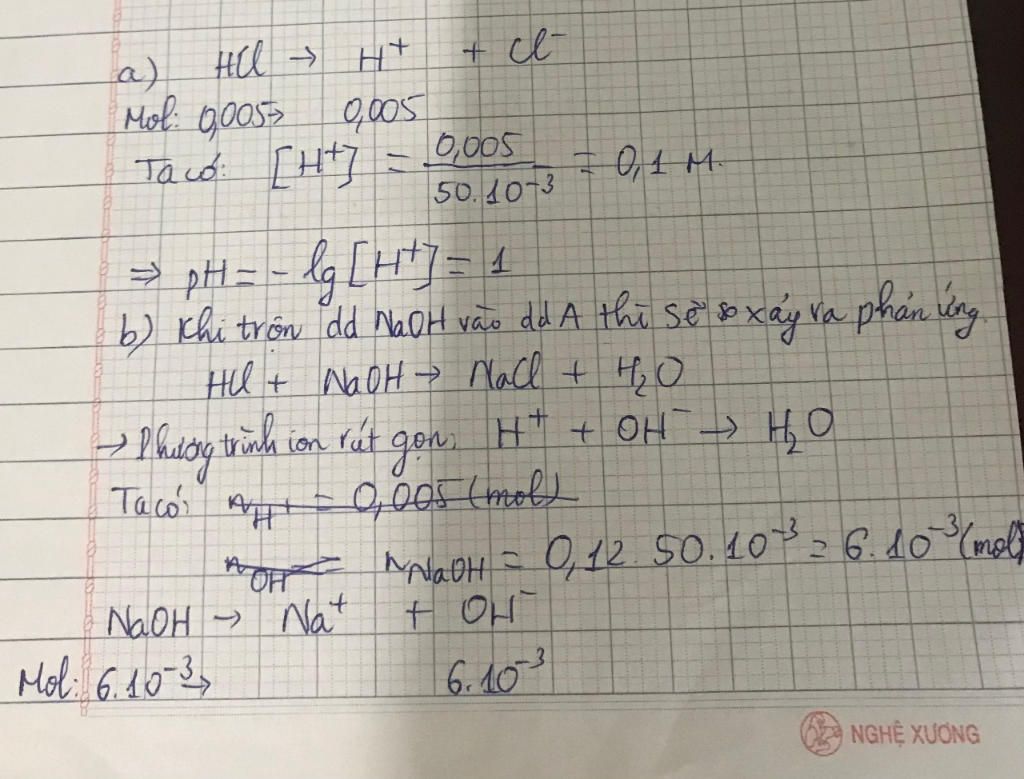 a) HCl → H⁺ + Cl⁻
Mol: 0,005→ 0,005
Ta có: [H⁺] = 0,005 / 50.10⁻³ = 0,1 M.
⇒ pH = - lg [H⁺] = 1
b) Khi trộn dd NaOH vào dd A thì sẽ xảy ra phản ứng
HCl + NaOH → NaCl + H₂O
→ Phương trình ion rút gọn: H⁺ + OH⁻ → H₂O
Ta có: n_H⁺ = 0,005 (mol)
n_OH⁻ = n_NaOH = 0,12. 50.10⁻³ = 6.10⁻³ (mol)
NaOH → Na⁺ + OH⁻
Mol: 6.10⁻³→ 6.10⁻³
NGHỆ XƯƠNG